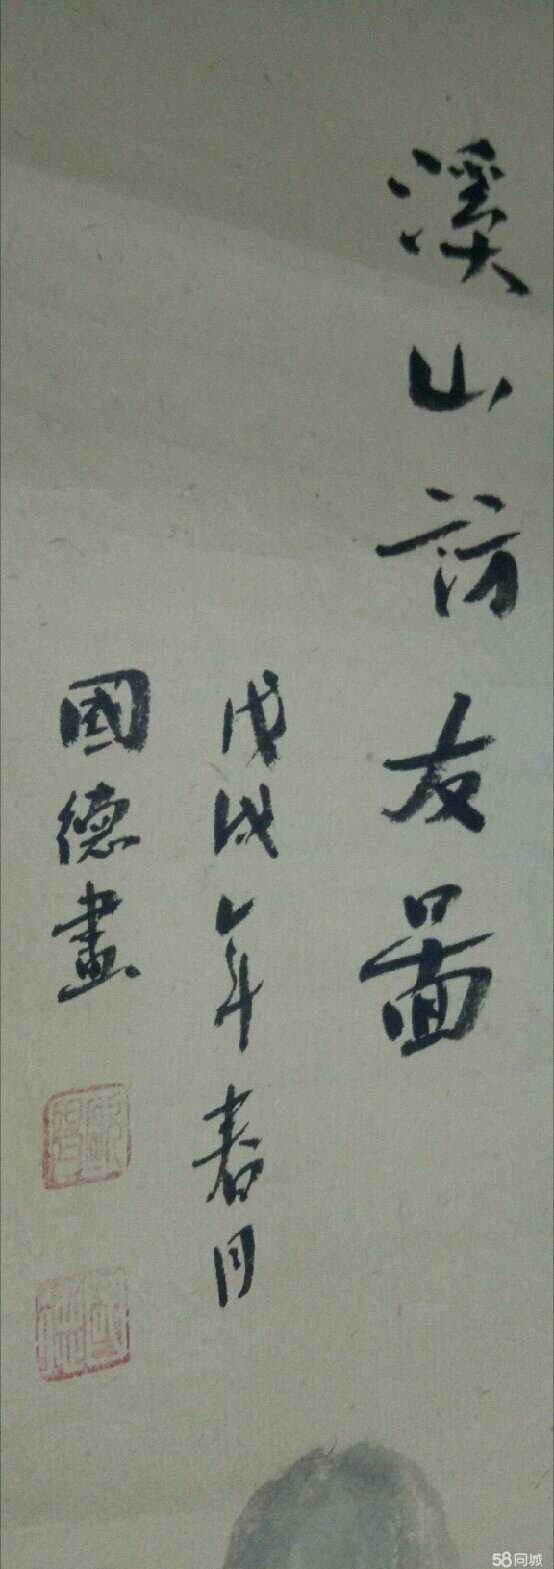 溪山訪友圖
戊戌年春月
國德畫
58同城